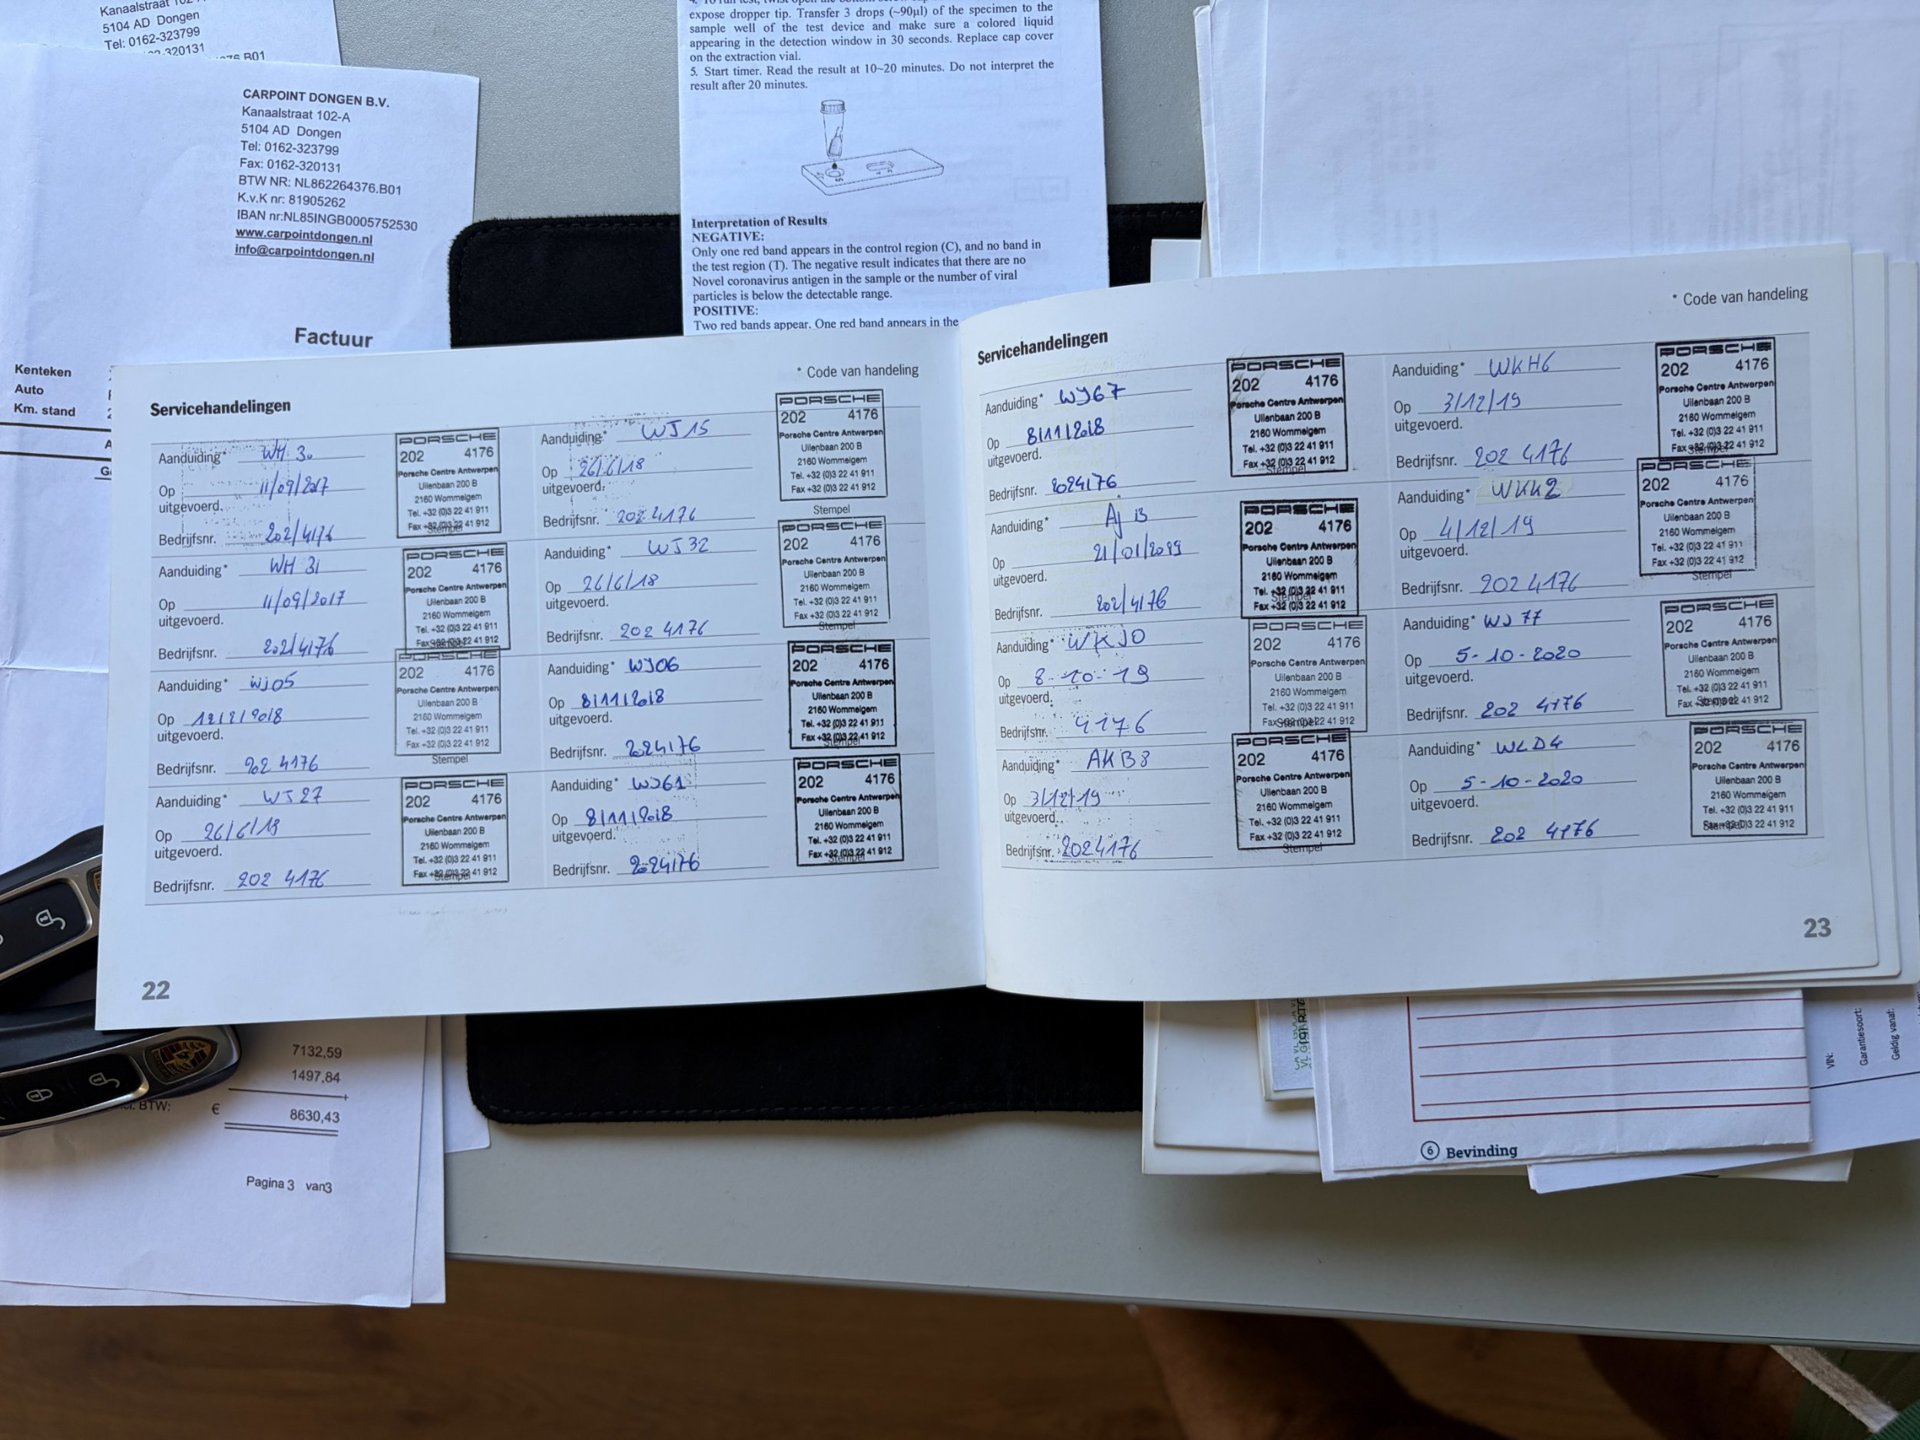 Kanaalstraat 102-A
5104 AD Dongen
Tel: 0162-323799
320131
CARPOINT DONGEN B.V.
Kanaalstraat 102-A
5104 AD Dongen
Tel: 0162-323799
Fax: 0162-320131
BTW NR: NL862264376.B01
K.v.K nr: 81905262
IBAN nr:NL85INGB0005752530
www.carpointdongen.nl
info@carpointdongen.nl
Factuur
Kenteken
Auto
Km. stand
expose dropper tip. Transfer 3 drops (~90µl) of the specimen to the
sample well of the test device and make sure a colored liquid
appearing in the detection window in 30 seconds. Replace cap cover
on the extraction vial.
5. Start timer. Read the result at 10~20 minutes. Do not interpret the
result after 20 minutes.
Interpretation of Results
NEGATIVE:
Only one red band appears in the control region (C), and no band in
the test region (T). The negative result indicates that there are no
Novel coronavirus antigen in the sample or the number of viral
particles is below the detectable range.
POSITIVE:
Two red bands appear. One red band appears in the
* Code van handeling
Servicehandelingen
Aanduiding* WH 30
Op 11/09/2017
uitgevoerd.
Bedrijfsnr. 202/4176
PORSCHE
202 4176
Porsche Centre Antwerpen
Uilenbaan 200 B
2160 Wommelgem
Tel. +32 (0)3 22 41 911
Fax +32 (0)3 22 41 912
Stempel
Aanduiding* WH 31
Op 11/09/2017
uitgevoerd.
Bedrijfsnr. 202/4176
PORSCHE
202 4176
Porsche Centre Antwerpen
Uilenbaan 200 B
2160 Wommelgem
Tel. +32 (0)3 22 41 911
Fax +32 (0)3 22 41 912
Aanduiding* WJ05
Op 12/2/2018
uitgevoerd.
Bedrijfsnr. 202 4176
202 4176
Porsche Centre Antwerpen
Uilenbaan 200 B
2160 Wommelgem
Tel. +32 (0)3 22 41 911
Fax +32 (0)3 22 41 912
Stempel
Aanduiding* WJ27
Op 26/6/18
uitgevoerd.
Bedrijfsnr. 202 4176
PORSCHE
202 4176
Porsche Centre Antwerpen
Uilenbaan 200 B
2160 Wommelgem
Tel. +32 (0)3 22 41 911
Fax +32 (0)3 22 41 912
Stempel
Aanduiding* WJ15
Op 26/6/18
uitgevoerd.
Bedrijfsnr. 202 4176
PORSCHE
202 4176
Porsche Centre Antwerpen
Uilenbaan 200 B
2160 Wommelgem
Tel. +32 (0)3 22 41 911
Fax +32 (0)3 22 41 912
Stempel
Aanduiding* WJ32
Op 26/6/18
uitgevoerd.
Bedrijfsnr. 202 4176
PORSCHE
202 4176
Porsche Centre Antwerpen
Uilenbaan 200 B
2160 Wommelgem
Tel. +32 (0)3 22 41 911
Fax +32 (0)3 22 41 912
Stempel
Aanduiding* WJ06
Op 8/11/2018
uitgevoerd.
Bedrijfsnr. 2024176
PORSCHE
202 4176
Porsche Centre Antwerpen
Uilenbaan 200 B
2160 Wommelgem
Tel. +32 (0)3 22 41 911
Fax +32 (0)3 22 41 912
Stempel
Aanduiding* WJ61
Op 8/11/2018
uitgevoerd.
Bedrijfsnr. 2024176
PORSCHE
202 4176
Porsche Centre Antwerpen
Uilenbaan 200 B
2160 Wommelgem
Tel. +32 (0)3 22 41 911
Fax +32 (0)3 22 41 912
Stempel
22
* Code van handeling
Servicehandelingen
Aanduiding* WJ67
Op 8/11/2018
uitgevoerd.
Bedrijfsnr. 2024176
PORSCHE
202 4176
Porsche Centre Antwerpen
Uilenbaan 200 B
2160 Wommelgem
Tel. +32 (0)3 22 41 911
Fax +32 (0)3 22 41 912
Stempel
Aanduiding*
Op 21/01/2019
uitgevoerd.
Bedrijfsnr. 202/4176
PORSCHE
202 4176
Porsche Centre Antwerpen
Uilenbaan 200 B
2160 Wommelgem
Tel. +32 (0)3 22 41 911
Fax +32 (0)3 22 41 912
Aanduiding* WKJ0
Op 8-10-19
uitgevoerd.
Bedrijfsnr. 4176
PORSCHE
202 4176
Porsche Centre Antwerpen
Uilenbaan 200 B
2160 Wommelgem
Tel. +32 (0)3 22 41 911
Fax +32 (0)3 22 41 912
Stempel
Aanduiding* AKB8
Op 3/12/19
uitgevoerd.
Bedrijfsnr. 2024176
PORSCHE
202 4176
Porsche Centre Antwerpen
Uilenbaan 200 B
2160 Wommelgem
Tel. +32 (0)3 22 41 911
Fax +32 (0)3 22 41 912
Stempel
Aanduiding* WKH6
Op 3/12/19
uitgevoerd.
Bedrijfsnr. 202 4176
PORSCHE
202 4176
Porsche Centre Antwerpen
Uilenbaan 200 B
2160 Wommelgem
Tel. +32 (0)3 22 41 911
Fax +32 (0)3 22 41 912
Stempel
Aanduiding* WKK2
Op 4/12/19
uitgevoerd.
Bedrijfsnr. 202 4176
PORSCHE
202 4176
Porsche Centre Antwerpen
Uilenbaan 200 B
2160 Wommelgem
Tel. +32 (0)3 22 41 911
Fax +32 (0)3 22 41 912
Stempel
Aanduiding* WJ77
Op 5-10-2020
uitgevoerd.
Bedrijfsnr. 202 4176
PORSCHE
202 4176
Porsche Centre Antwerpen
Uilenbaan 200 B
2160 Wommelgem
Tel. +32 (0)3 22 41 911
Fax +32 (0)3 22 41 912
Stempel
Aanduiding* WLD4
Op 5-10-2020
uitgevoerd.
Bedrijfsnr. 202 4176
PORSCHE
202 4176
Porsche Centre Antwerpen
Uilenbaan 200 B
2160 Wommelgem
Tel. +32 (0)3 22 41 911
Fax +32 (0)3 22 41 912
Stempel
23
7132,59
1497,84
BTW: € 8630,43
Pagina 3 van3
6 Bevinding
VIN:
Garantiesoort:
Geldig vanaf: